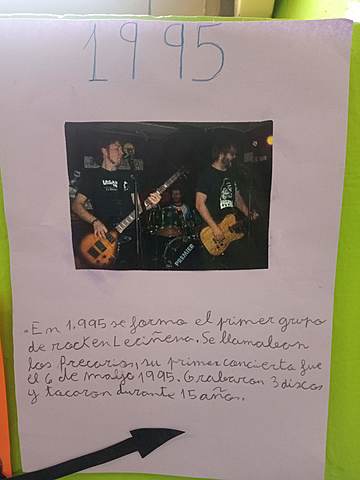 1995
PREMIER
-En 1.995 se formo el primer grupo
de rock en Leciñena. Se llamaban
los Precarios, su primer concierto fue
el 6 de mayo 1995. Grabaron 3 discos
y tocaron durante 15 años.